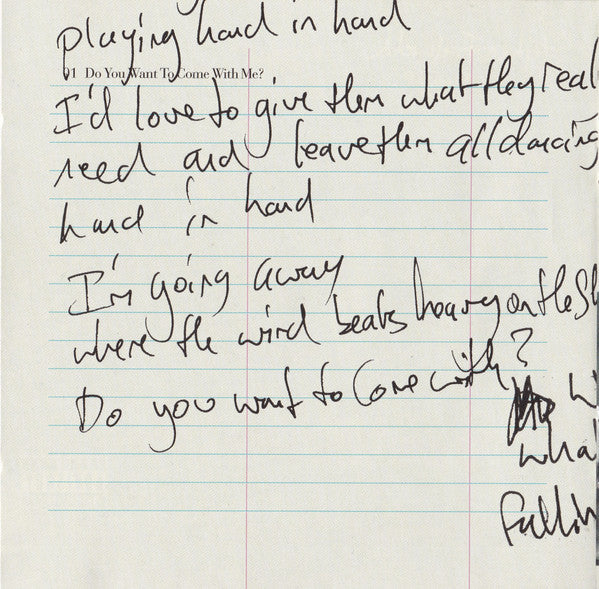 playing hand in hand
01 Do You Want To Come With Me?
I'd love to give them what they real
need and leave them all dancing
hand in hand
I'm going away
where the wind beats heavy on the Sh
Do you want to Come with?
wi
wha
Fallin